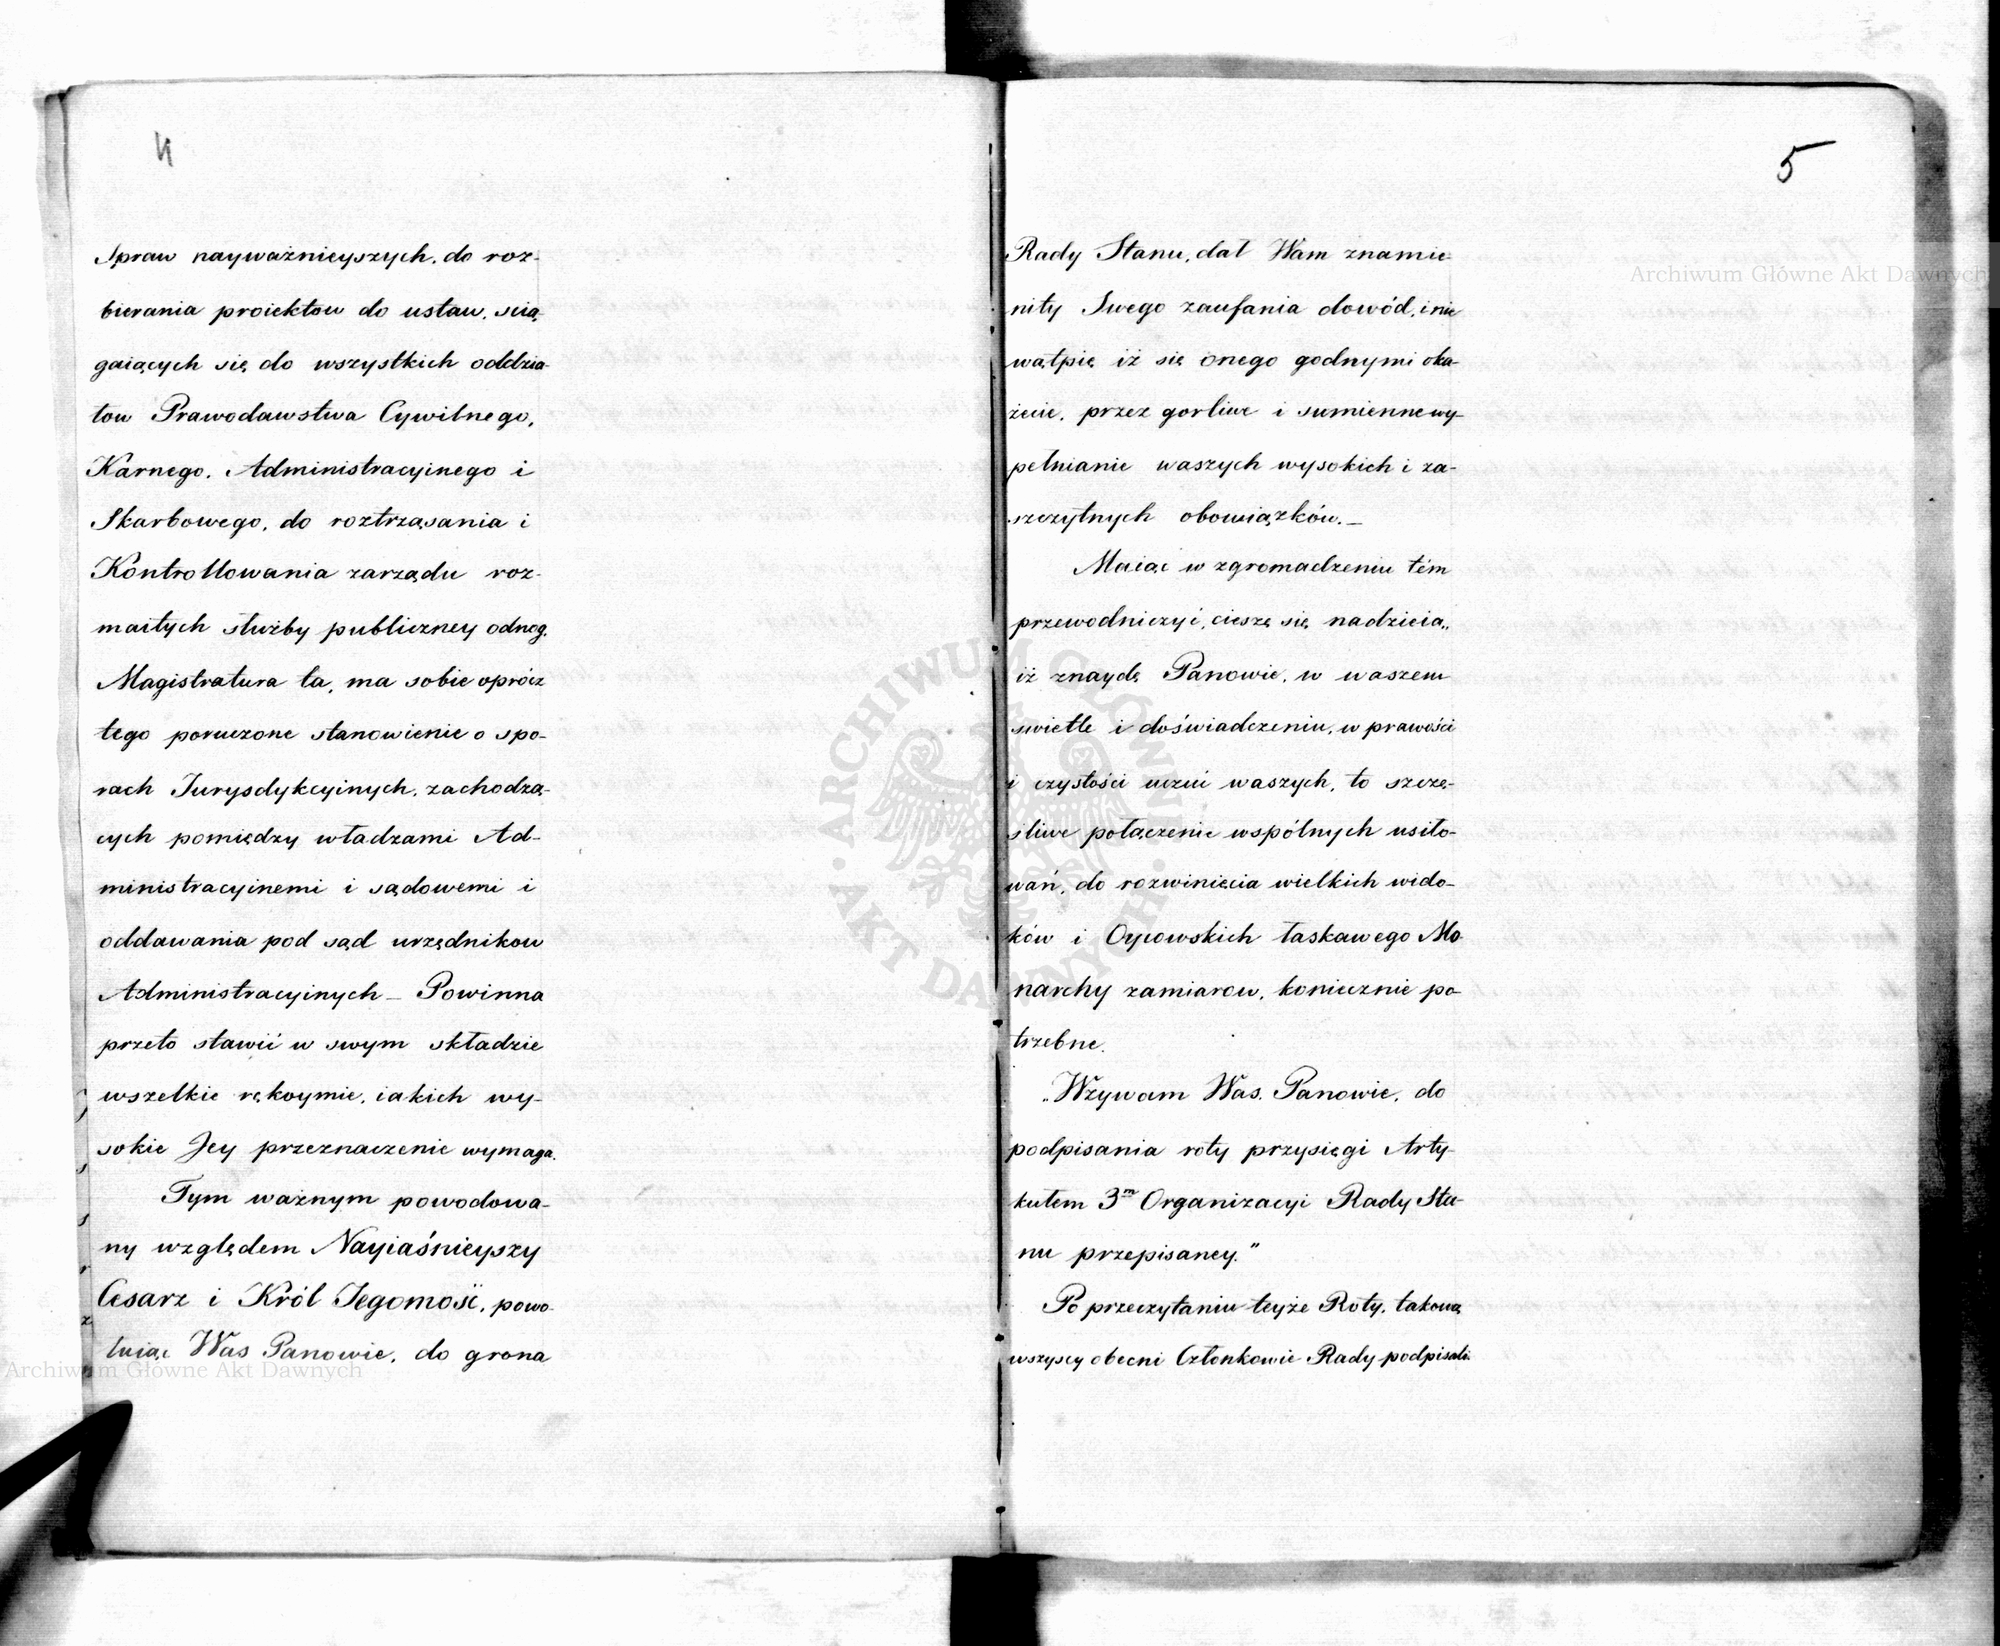 4
Spraw nayważnieyszych, do roz-
bierania proiektow do ustaw, scią
gaiących się do wszystkich oddzia-
łow Prawodawstwa Cywilnego,
Karnego, Administracyinego i
Skarbowego, do roztrząsania i
Kontrollowania zarządu roz-
maitych służby publiczney odnog.
Magistratura ta, ma sobie oprócz
tego poruczone stanowienie o spo-
rach Jurysdykcyinych, zachodzą-
cych pomiędzy władzami Ad-
ministracyinemi i sądowemi i
oddawania pod sąd urzędnikow
Administracyinych – Powinna
przeto stawić w swym składzie
wszelkie rękoymie, iakich wy-
sokie Jey przeznaczenie wymaga.
Tym ważnym powodowa-
ny względem Nayiaśnieyszy
Cesarz i Król Jegomość, powo-
łuiąc Was Panowie, do grona
5
Rady Stanu, dał Wam znamie-
nity Swego zaufania dowód, i nie
wątpię iż się onego godnymi oka-
życie, przez gorliwe i sumienne wy-
pełnianie waszych wysokich i za-
szczytnych obowiązków. –
Maiąc w zgromadzeniu tém
przewodniczyć, cieszę się nadzieią,
iż znaydę Panowie, w waszem
swietle i doświadczeniu, w prawości
i czystości uczuć waszych, to szczę-
śliwe połączenie wspólnych usiło-
wań, do rozwinięcia wielkich wido-
ków i Oycowskich łaskawego Mo-
narchy zamiarow, koniecznie po-
trzebne.
„Wzywam Was, Panowie, do
podpisania roty przysięgi Arty-
kułem 3m Organizacyi Rady Sta-
nu przepisaney."
Po przeczytaniu teyże Roty, takową
wszyscy obecni Członkowie Rady podpisali.
Archiwum Główne Akt Dawnych
Archiwum Główne Akt Dawnych
ARCHIWUM GŁÓWNE AKT DAWNYCH